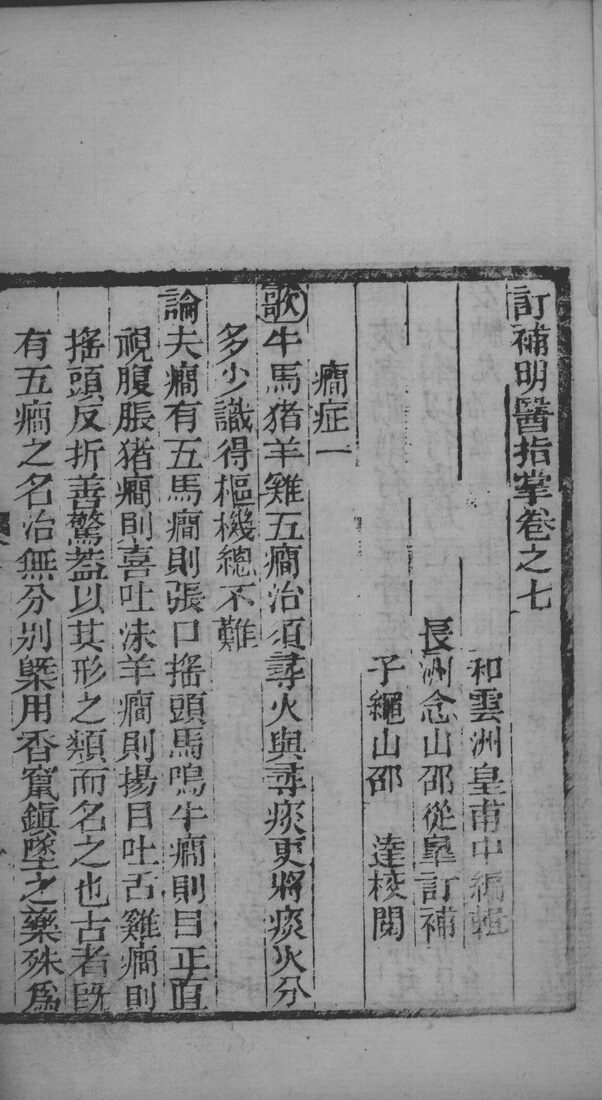 訂補明醫指掌卷之七
和雲洲皇甫中編輯
長洲念山邵從皋訂補
子繩山邵　達校閱
癎症一
歌牛馬猪羊雞五癎治須尋火與尋痰更將痰火分
多少識得樞機總不難
論夫癎有五馬癎則張口搖頭馬鳴牛癎則目正直
視腹脹猪癎則喜吐沫羊癎則揚目吐舌雞癎則
搖頭反折善驚葢以其形之類而名之也古者旣
有五癎之名治無分别槩用香竄鎮墜之藥殊爲